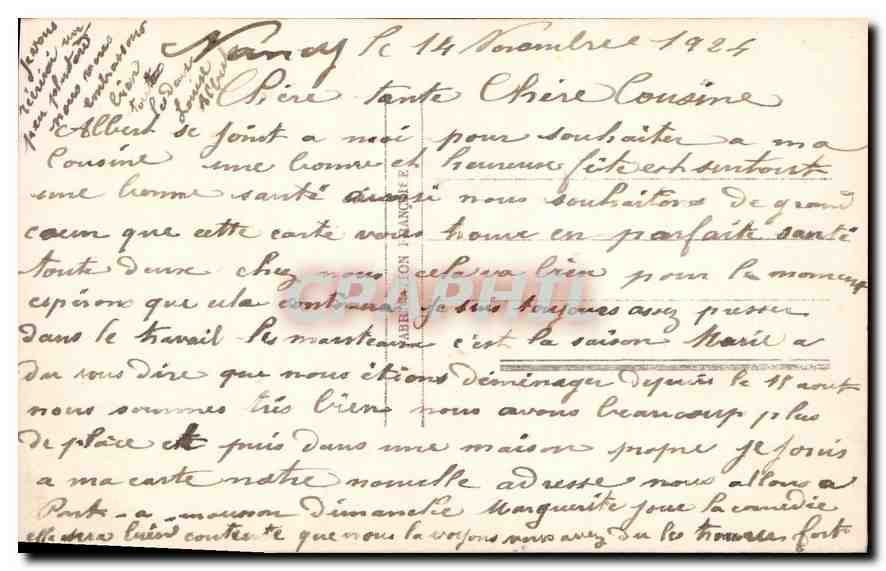 Nancy le 14 Novembre 1924
Chère tante Chère Cousine
Albert se joint a moi pour souhaiter a ma
Cousine une bonne et heureuse fête est surtout
une bonne santé aussi nous souhaitons de grand
coeur que cette carte vous trouve en parfaite santé
toute deux chez nous cela va bien pour le moment
espérons que cela continura je suis toujours assez presser
dans le travail les manteaux c'est la saison Marie a
du vous dire que nous étions déménager depuis le 15 aout
nous sommes très bien nous avons beaucoup plus
de place et puis dans une maison propre je joins
a ma carte notre nouvelle adresse nous allons a
Pont-a-mousson dimanche Marguerite joue la comédie
elle sera bien contente que nous la voyons vous avez du les trouver fort
Je vous
écrirai un
peu plutard
nous vous
embrassons
bien
toutes
les deux
Louise
Albert
FABRICATION FRANÇAISE
CPAPHIL